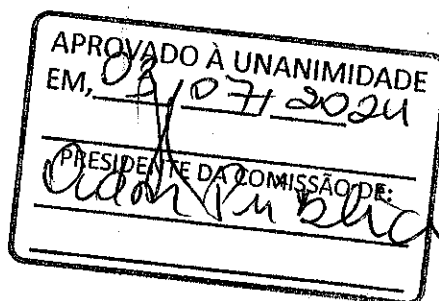 APROVADO À UNANIMIDADE
EM, 03/07/2024
PRESIDENTE DA COMISSÃO DE:
Adm Publica